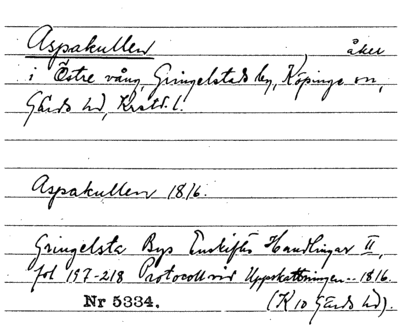 Aspakullen åker
i Östre vång, Gringelstads by, Köpinge sn,
Gärds hd, Kristi. l.
Aspakullen 1816.
Gringelsta Bys Enskiftes Handlingar II,
fol 197-218 Protocoll vid Uppskattningen -- 1816.
Nr 5334. (K 10 Gärds hd).